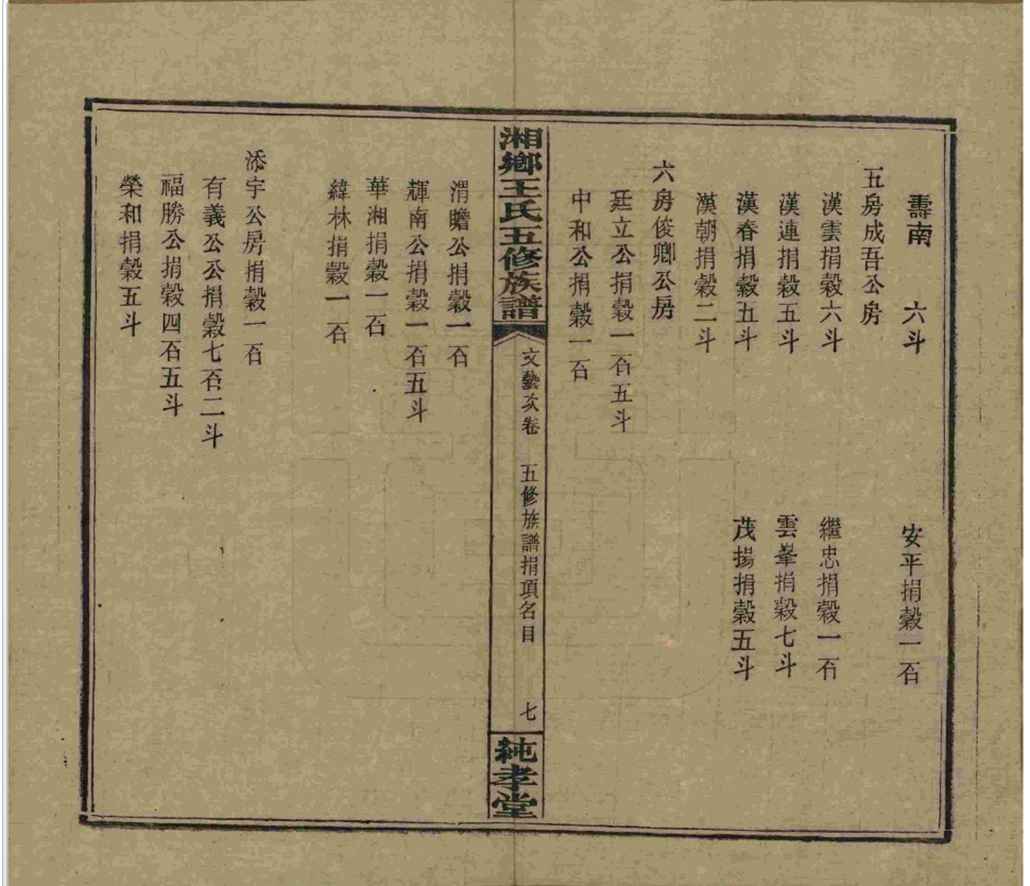 壽南　六斗　安平捐穀一石
五房成吾公房
漢雲捐穀六斗　繼忠捐穀一石
漢連捐穀五斗　雲峯捐穀七斗
漢春捐穀五斗　茂揚捐穀五斗
漢朝捐穀二斗
六房俊卿公房
廷立公捐穀一石五斗
中和公捐穀一石
湘鄉王氏五修族譜　文藝次卷　五修族譜捐項名目　七　純孝堂
渭瞻公捐穀一石
輝南公捐穀一石五斗
華湘捐穀一石
緯林捐穀一石
添宇公房捐穀一石
有義公公捐穀七石二斗
福勝公捐穀四石五斗
榮和捐穀五斗